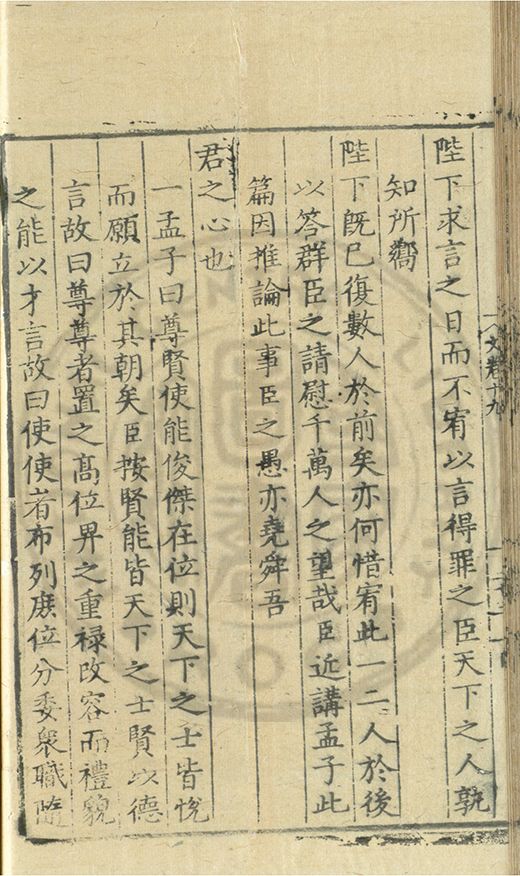 陛下求言之日而不宥以言得罪之臣天下之人孰
知所嚮
陛下旣已復數人於前矣亦何惜宥此一二人於後
以答群臣之請慰千萬人之望哉臣近講孟子此
篇因推論此事臣之愚亦堯舜吾
君之心也
一孟子曰尊賢使能俊傑在位則天下之士皆悅
而願立於其朝矣臣按賢能皆天下之士賢以德
言故曰尊尊者置之高位畀之重祿改容而禮貌
之能以才言故曰使使者布列庶位分委衆職隨
文卷十九